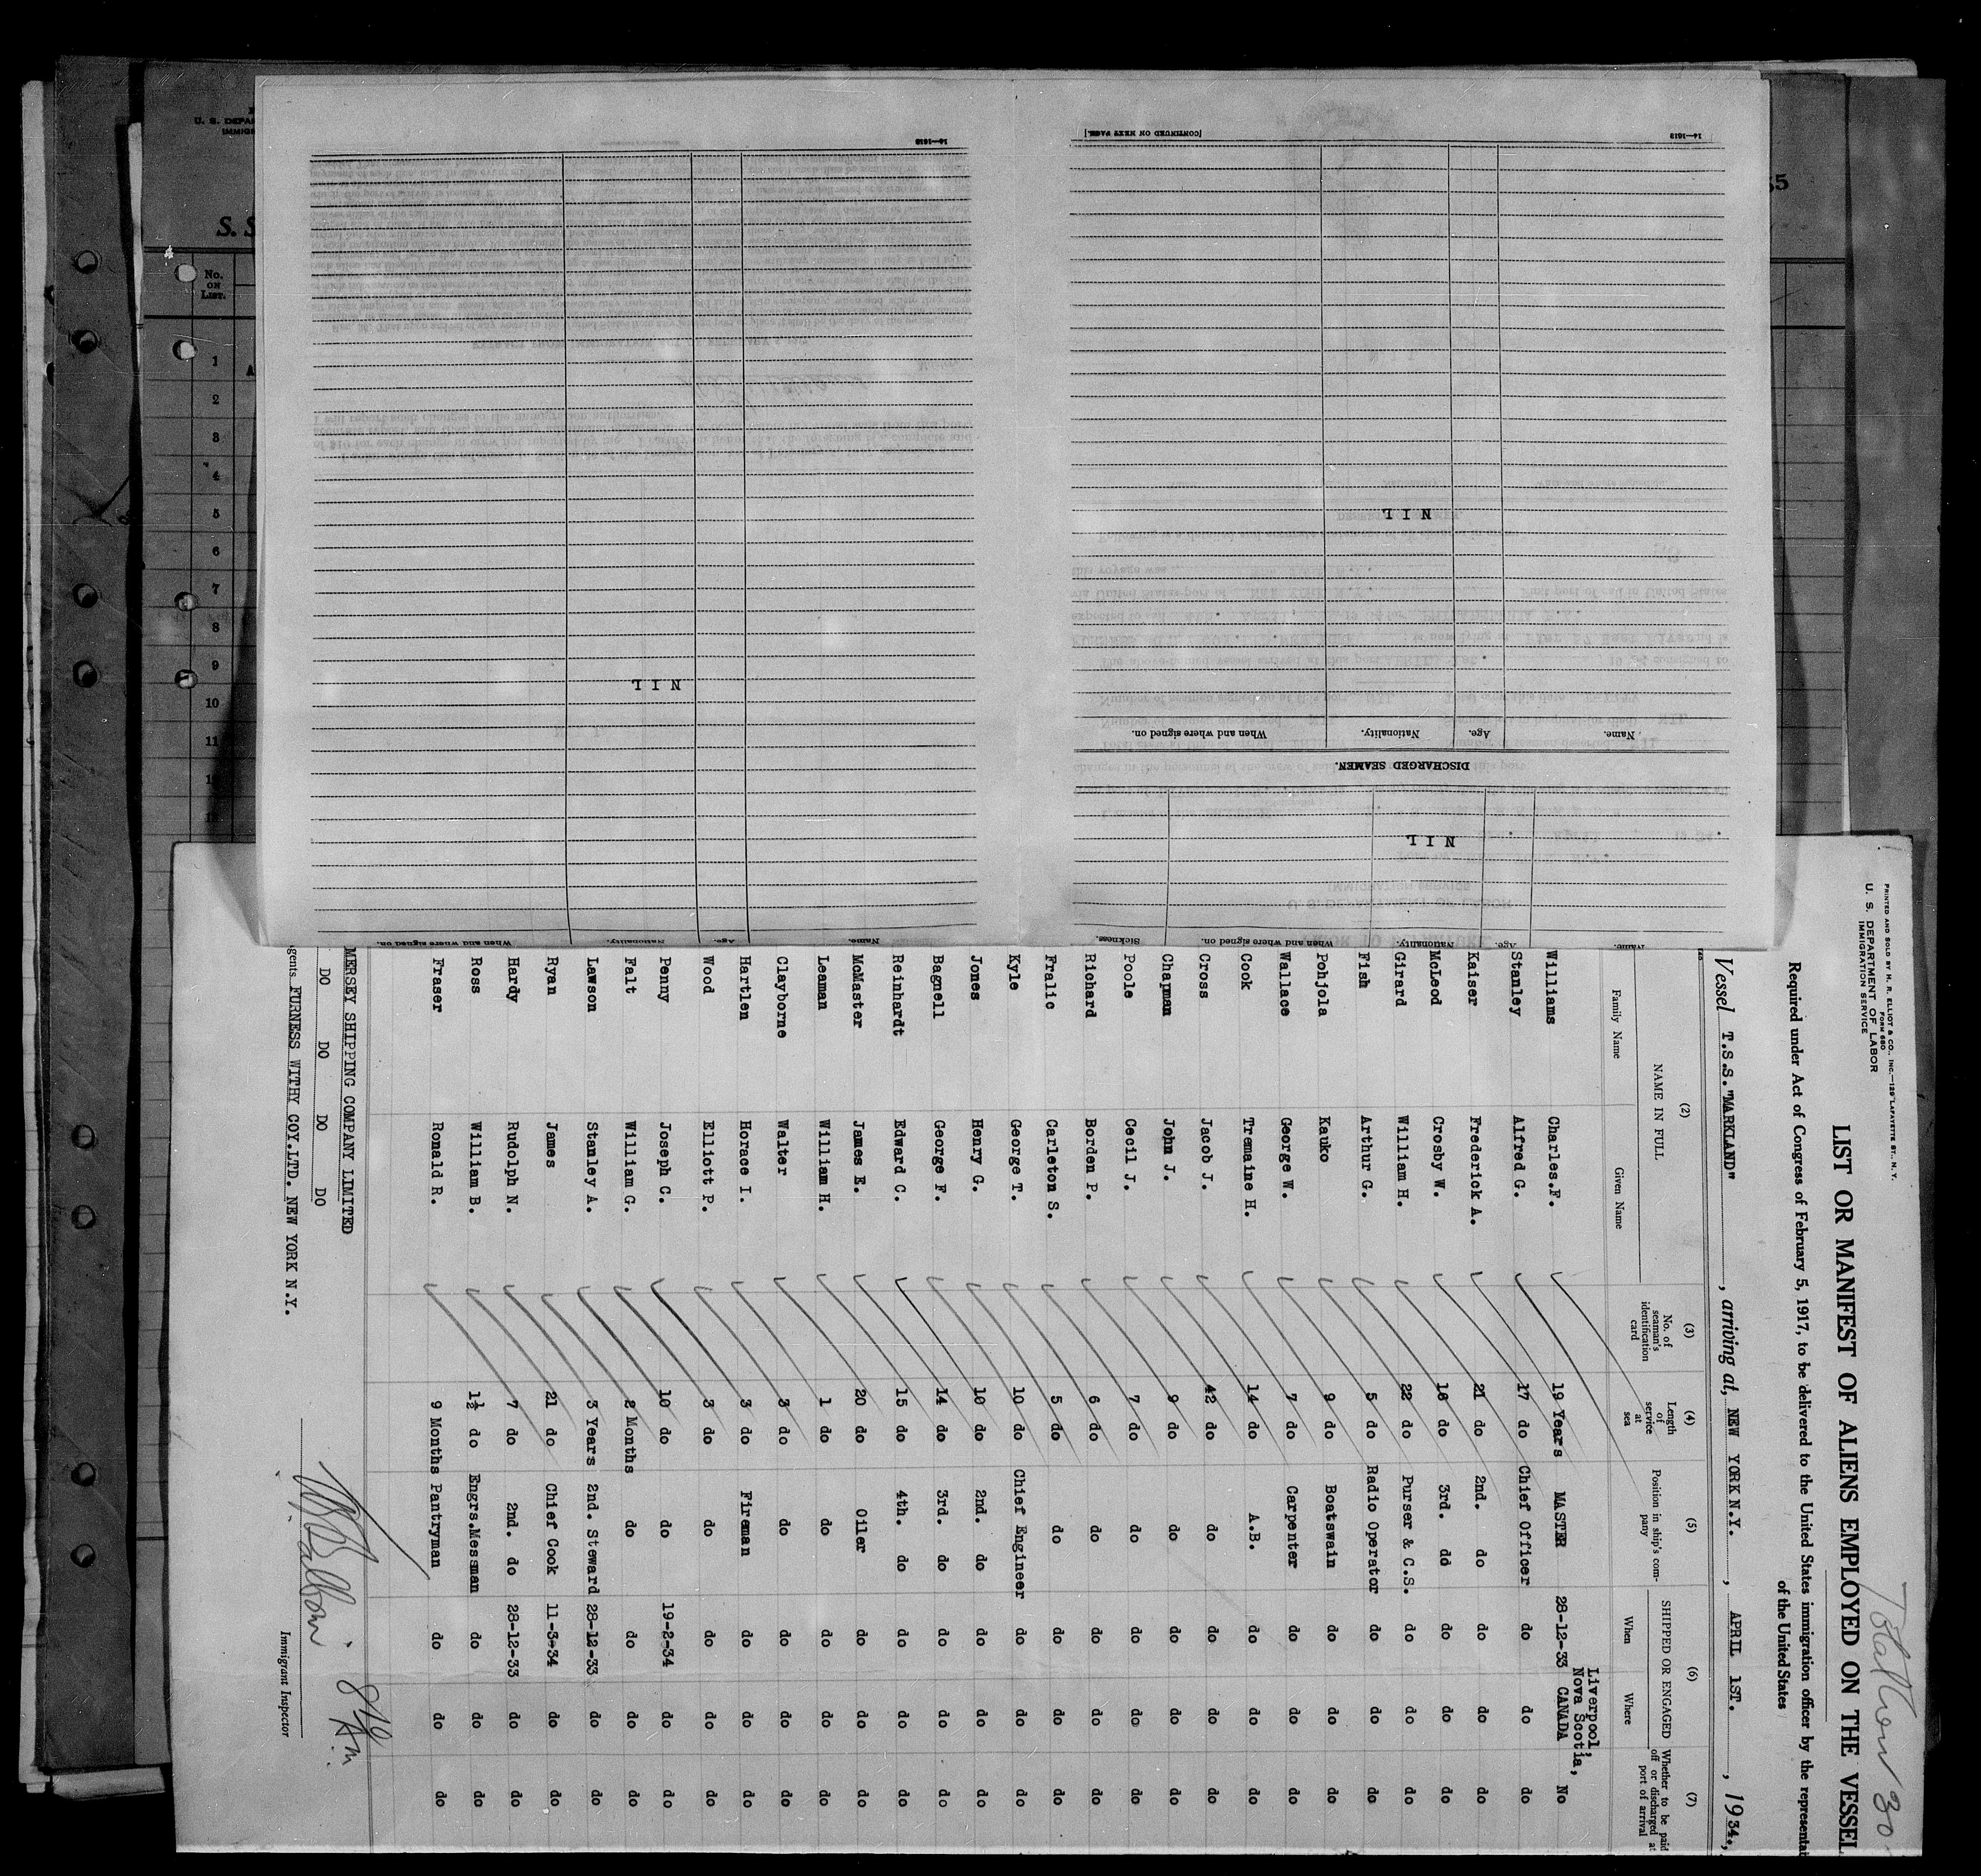 PRINTED AND SOLD BY H. R. ELLIOT & CO., INC.—129 LAFAYETTE ST., N. Y.
FORM 680
U. S. DEPARTMENT OF LABOR
IMMIGRATION SERVICE
Total Crew 30
LIST OR MANIFEST OF ALIENS EMPLOYED ON THE VESSEL
Required under Act of Congress of February 5, 1917, to be delivered to the United States immigration officer by the representat
of the United States
Vessel T.S.S."MARKLAND", arriving at, NEW YORK N.Y., APRIL 1ST., 1934.,
(2) (3) (4) (5) (6) (7)
NAME IN FULL
Family Name Given Name
No. of seaman's identification card
Length of service at sea
Position in ship's company
SHIPPED OR ENGAGED
When Where
Whether to be paid off or discharged at port of arrival
Liverpool,
Nova Scotia,
Williams Charles.F. 19 Years MASTER 28-12-33 CANADA No
Stanley Alfred G. 17 do Chief Officer do do do
Kaiser Frederick A. 21 do 2nd. do do do do
McLeod Crosby W. 16 do 3rd. do do do do
Girard William H. 22 do Purser & C.S. do do do
Fish Arthur G. 5 do Radio Operator do do do
Pohjola Kauko 9 do Boatswain do do do
Wallace George W. 7 do Carpenter do do do
Cook Tremaine H. 14 do A.B. do do do
Cross Jacob J. 42 do do do do do
Chapman John J. 9 do do do do do
Poole Cecil J. 7 do do do do do
Richard Borden P. 6 do do do do do
Fralic Carleton S. 5 do do do do do
Kyle George T. 10 do Chief Engineer do do do
Jones Henry G. 10 do 2nd. do do do do
Bagnell George F. 14 do 3rd. do do do do
Reinhardt Edward C. 15 do 4th. do do do do
McMaster James E. 20 do Oiler do do do
Leaman William H. 1 do do do do do
Clayborne Walter 3 do do do do do
Hartlen Horace I. 3 do Fireman do do do
Wood Elliott P. 3 do do do do do
Penny Joseph C. 10 do do 19-2-34 do do
Falt William G. 2 Months do do do do
Lawson Stanley A. 3 Years 2nd. Steward 28-12-33 do do
Ryan James 21 do Chief Cook 11-3-34 do do
Hardy Rudolph N. 7 do 2nd. do 28-12-33 do do
Ross William B. 1½ do Engrs.Messman do do do
Fraser Ronald R. 9 Months Pantryman do do do
MERSEY SHIPPING COMPANY LIMITED
DO DO DO DO
gents. FURNESS WITHY COY.LTD. NEW YORK N.Y.
Immigrant Inspector
Name. Age. Nationality. When and where signed on. Sickness.
NIL
DISCHARGED SEAMEN.
Name. Age. Nationality. When and where signed on.
NIL
[CONTINUED ON NEXT PAGE.]
14—1613
Name. Age. Nationality. When and where signed on.
NIL
14—1613
U. S. DEPA
IMMIGR
S. S
No.
ON
LIST.
1
2
3
4
5
6
7
8
9
10
11
35